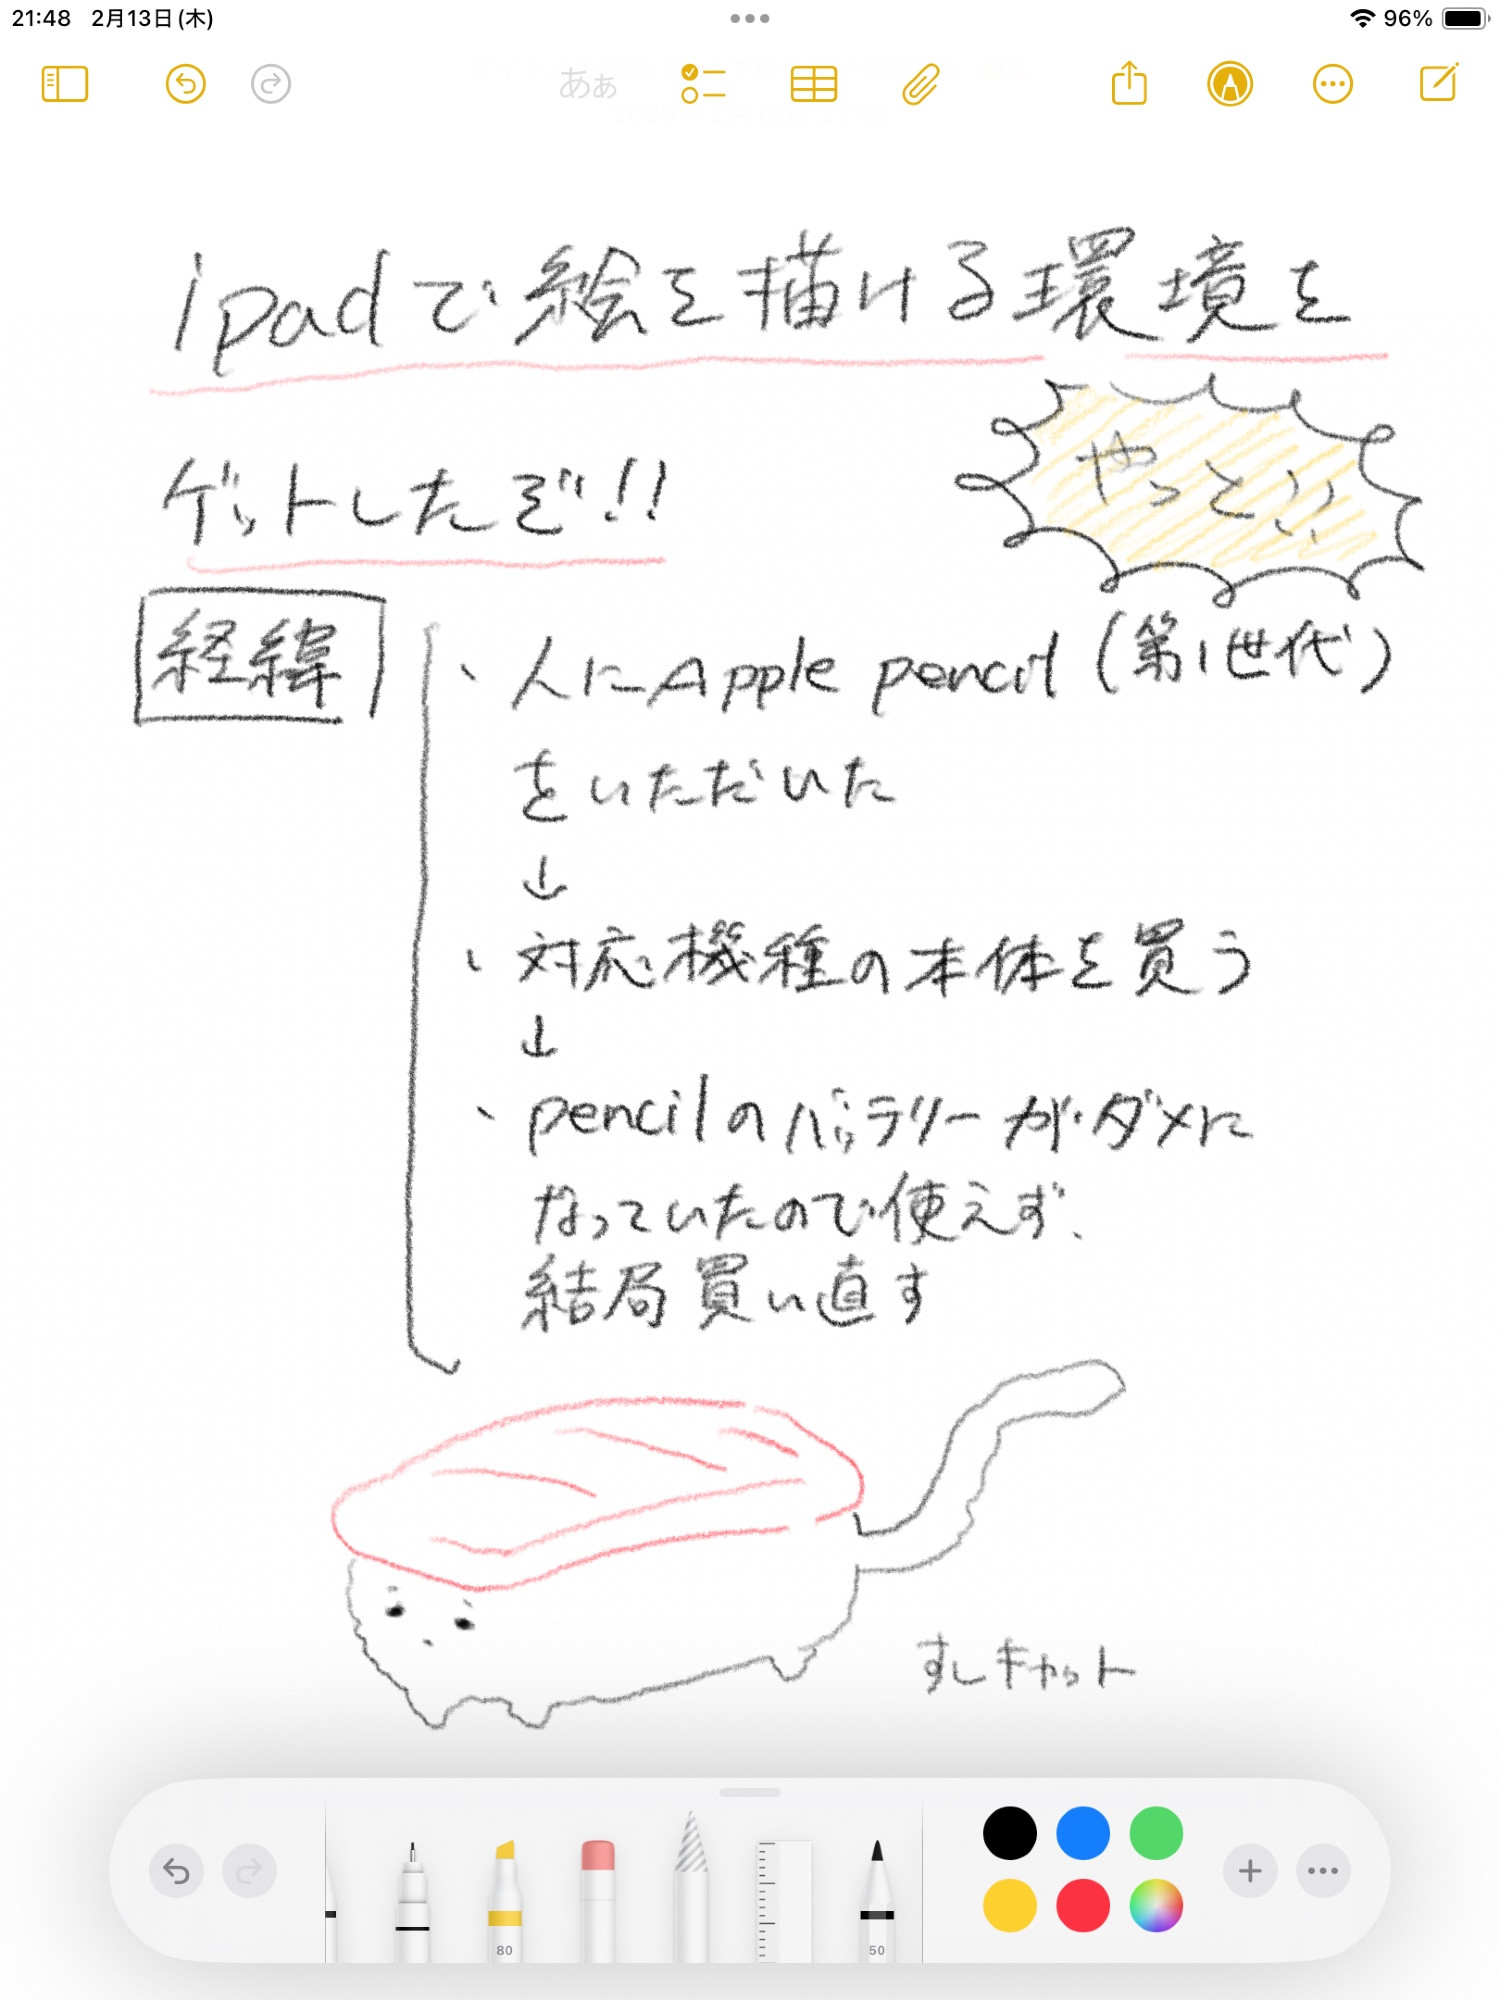 21:48 2月13日(木)
96%
あぁ
ipadで絵を描ける環境を
ゲットしたぞ!!
やっと!!
経緯
・人にApple pencil(第1世代)
をいただいた
↓
・対応機種の本体を買う
↓
・pencilのバッテリーがダメに
なっていたので使えず、
結局買い直す
すしキャット
80
50